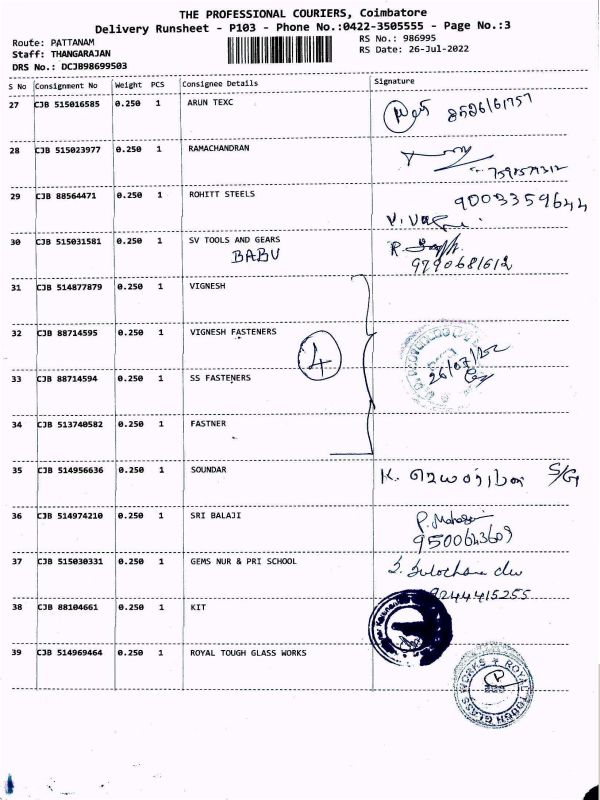 THE PROFESSIONAL COURIERS, Coimbatore
Delivery Runsheet - P103 - Phone No.:0422-3505555 - Page No.:3
Route: PATTANAM
RS No.: 986995
Staff: THANGARAJAN
RS Date: 26-Jul-2022
DRS No.: DCJB98699503
S No Consignment No Weight PCS Consignee Details Signature
27 CJB 515016585 0.250 1 ARUN TEXC
28 CJB 515023977 0.250 1 RAMACHANDRAN
29 CJB 88564471 0.250 1 ROHITT STEELS 9003359644
30 CJB 515031581 0.250 1 SV TOOLS AND GEARS
BABU 9790681612
31 CJB 514877879 0.250 1 VIGNESH
32 CJB 88714595 0.250 1 VIGNESH FASTENERS
4
26/07/22
33 CJB 88714594 0.250 1 SS FASTENERS
34 CJB 513740582 0.250 1 FASTNER
35 CJB 514956636 0.250 1 SOUNDAR K. S/G
36 CJB 514974210 0.250 1 SRI BALAJI P.
9500643609
37 CJB 515030331 0.250 1 GEMS NUR & PRI SCHOOL
9244415255
38 CJB 88104661 0.250 1 KIT
39 CJB 514969464 0.250 1 ROYAL TOUGH GLASS WORKS
ROYAL TOUGH GLASS WORKS